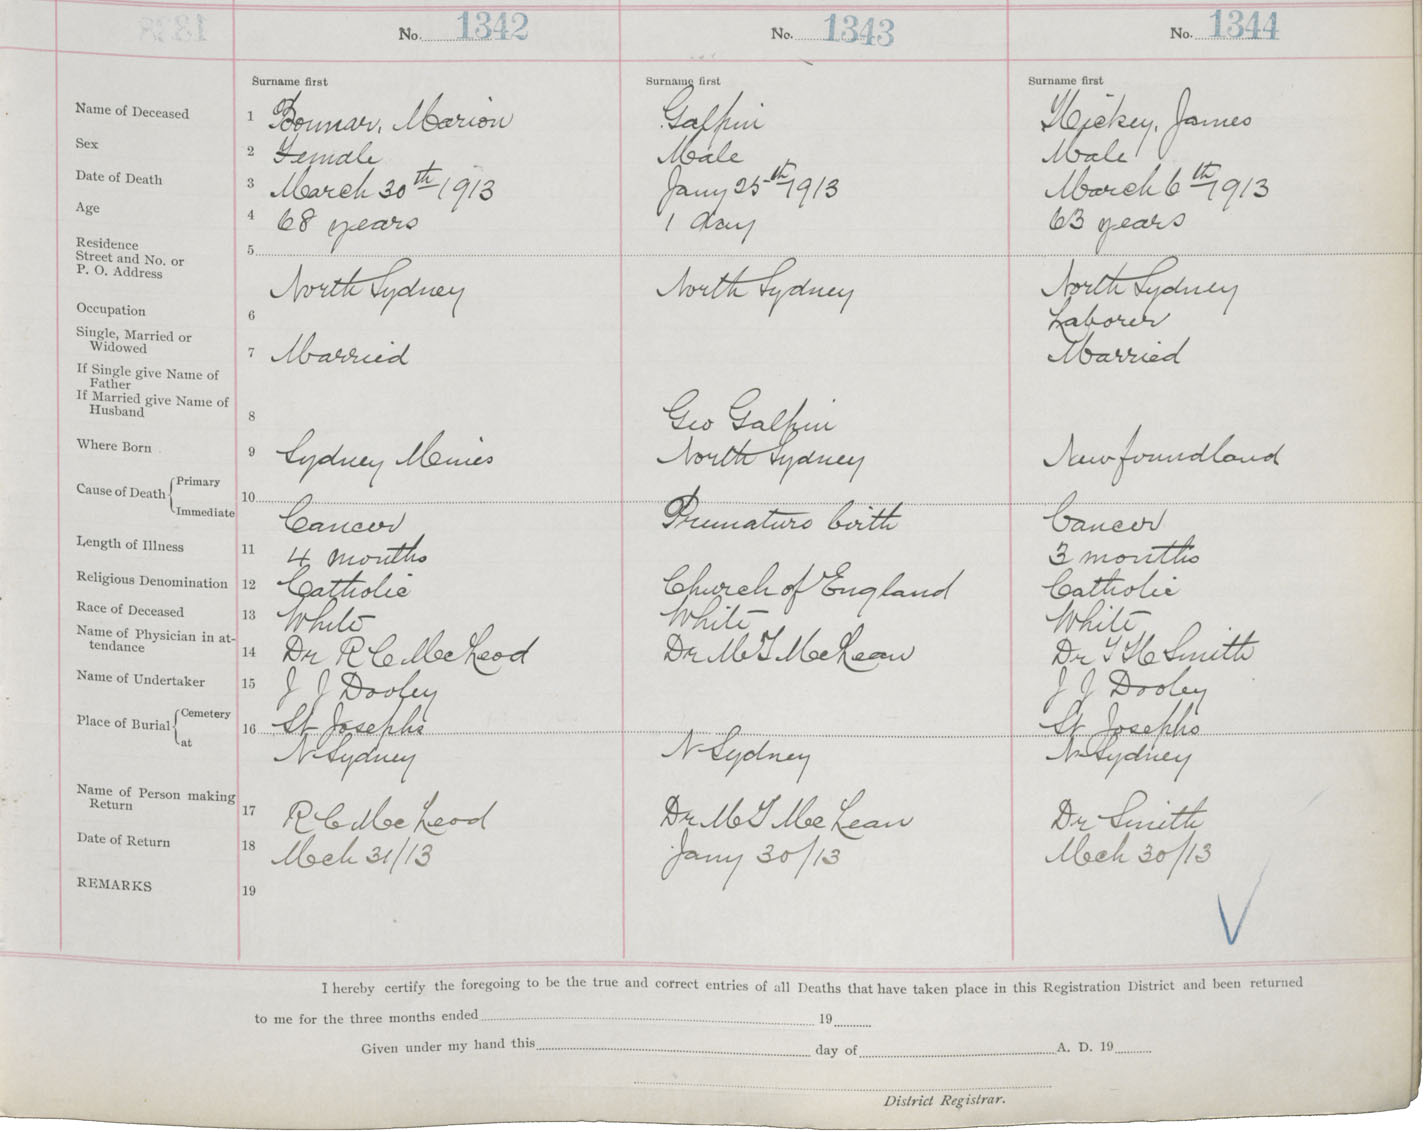 No. 1342 No. 1343 No. 1344
Surname first Surname first Surname first
Name of Deceased 1 Bonnar, Marion Galpin Hickey, James
Sex 2 Female Male Male
Date of Death 3 March 30th 1913 Jany 25th 1913 March 6th 1913
Age 4 68 years 1 day 63 years
Residence
Street and No. or 5
P. O. Address
North Sydney North Sydney North Sydney
Occupation 6 Laborer
Single, Married or
Widowed 7 Married Married
If Single give Name of
Father
If Married give Name of
Husband 8 Geo Galpin
Where Born 9 Sydney Mines North Sydney Newfoundland
Cause of Death Primary 10
Immediate Cancer Premature birth Cancer
Length of Illness 11 4 months 3 months
Religious Denomination 12 Catholic Church of England Catholic
Race of Deceased 13 White White White
Name of Physician in at-
tendance 14 Dr R C McLeod Dr M T McLean Dr T H Smith
Name of Undertaker 15 J J Dooley J J Dooley
Place of Burial Cemetery 16 St Josephs St Josephs
at N Sydney N Sydney N Sydney
Name of Person making
Return 17 R C McLeod Dr M T McLean Dr Smith
Date of Return 18 Mch 31/13 Jany 30/13 Mch 30/13
REMARKS 19
I hereby certify the foregoing to be the true and correct entries of all Deaths that have taken place in this Registration District and been returned
to me for the three months ended 19
Given under my hand this day of A. D. 19
District Registrar.